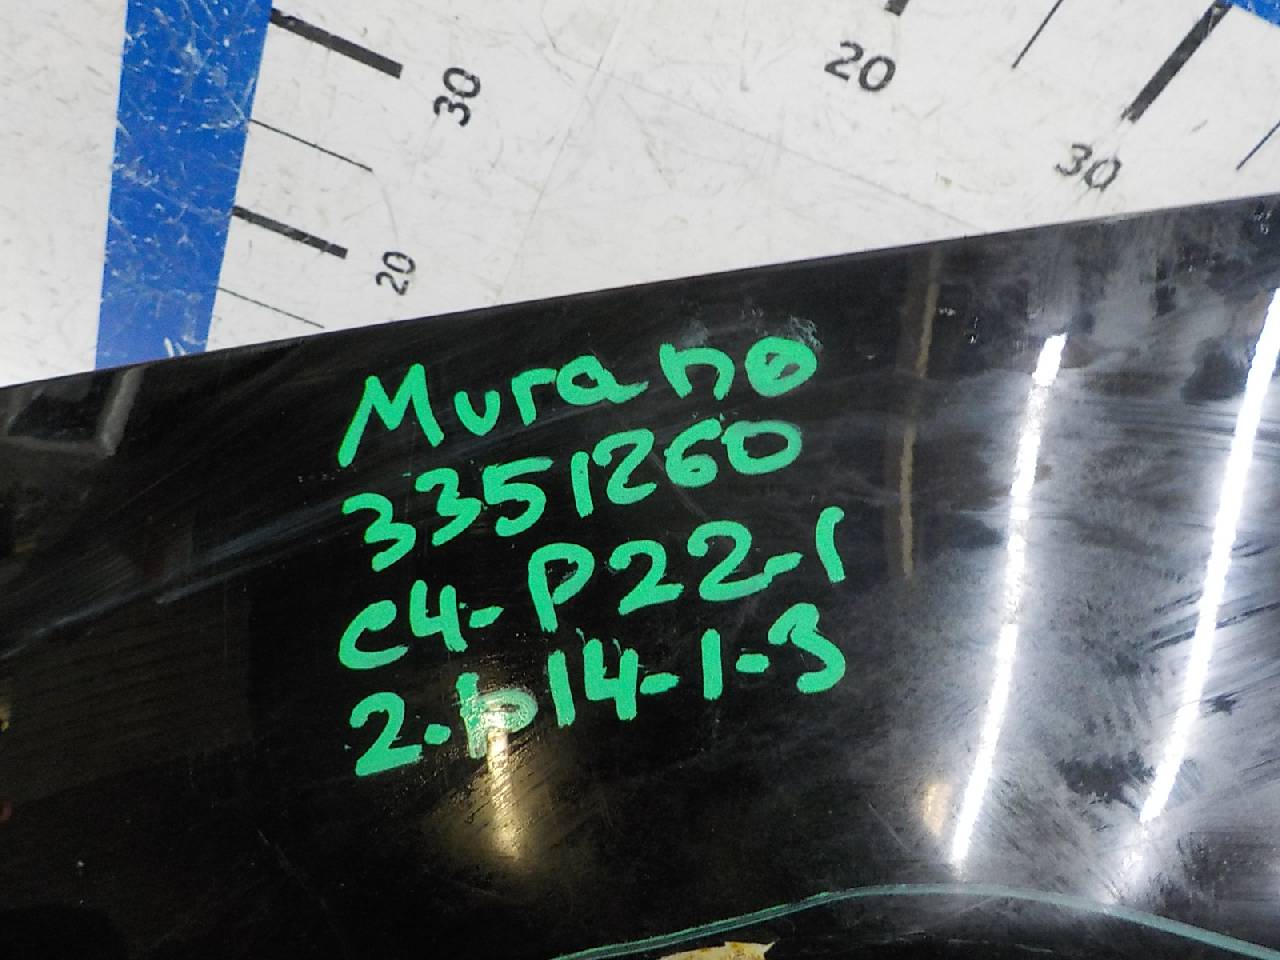 30
20
20
30
Murano
3351260
C4-P22-1
2.b14-1-3